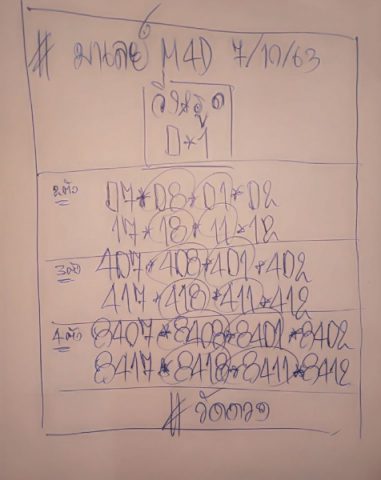 # มาเลย์ M4D 7/10/63
วิ่นรูด
0*1
2ตัว 07*08*01*02
17*18*11*12
3ตัว 407*408*401*402
417*418*411*412
4ตัว 8407*8408*8401*8402
8417*8418*8411*8412
# วัดดวง